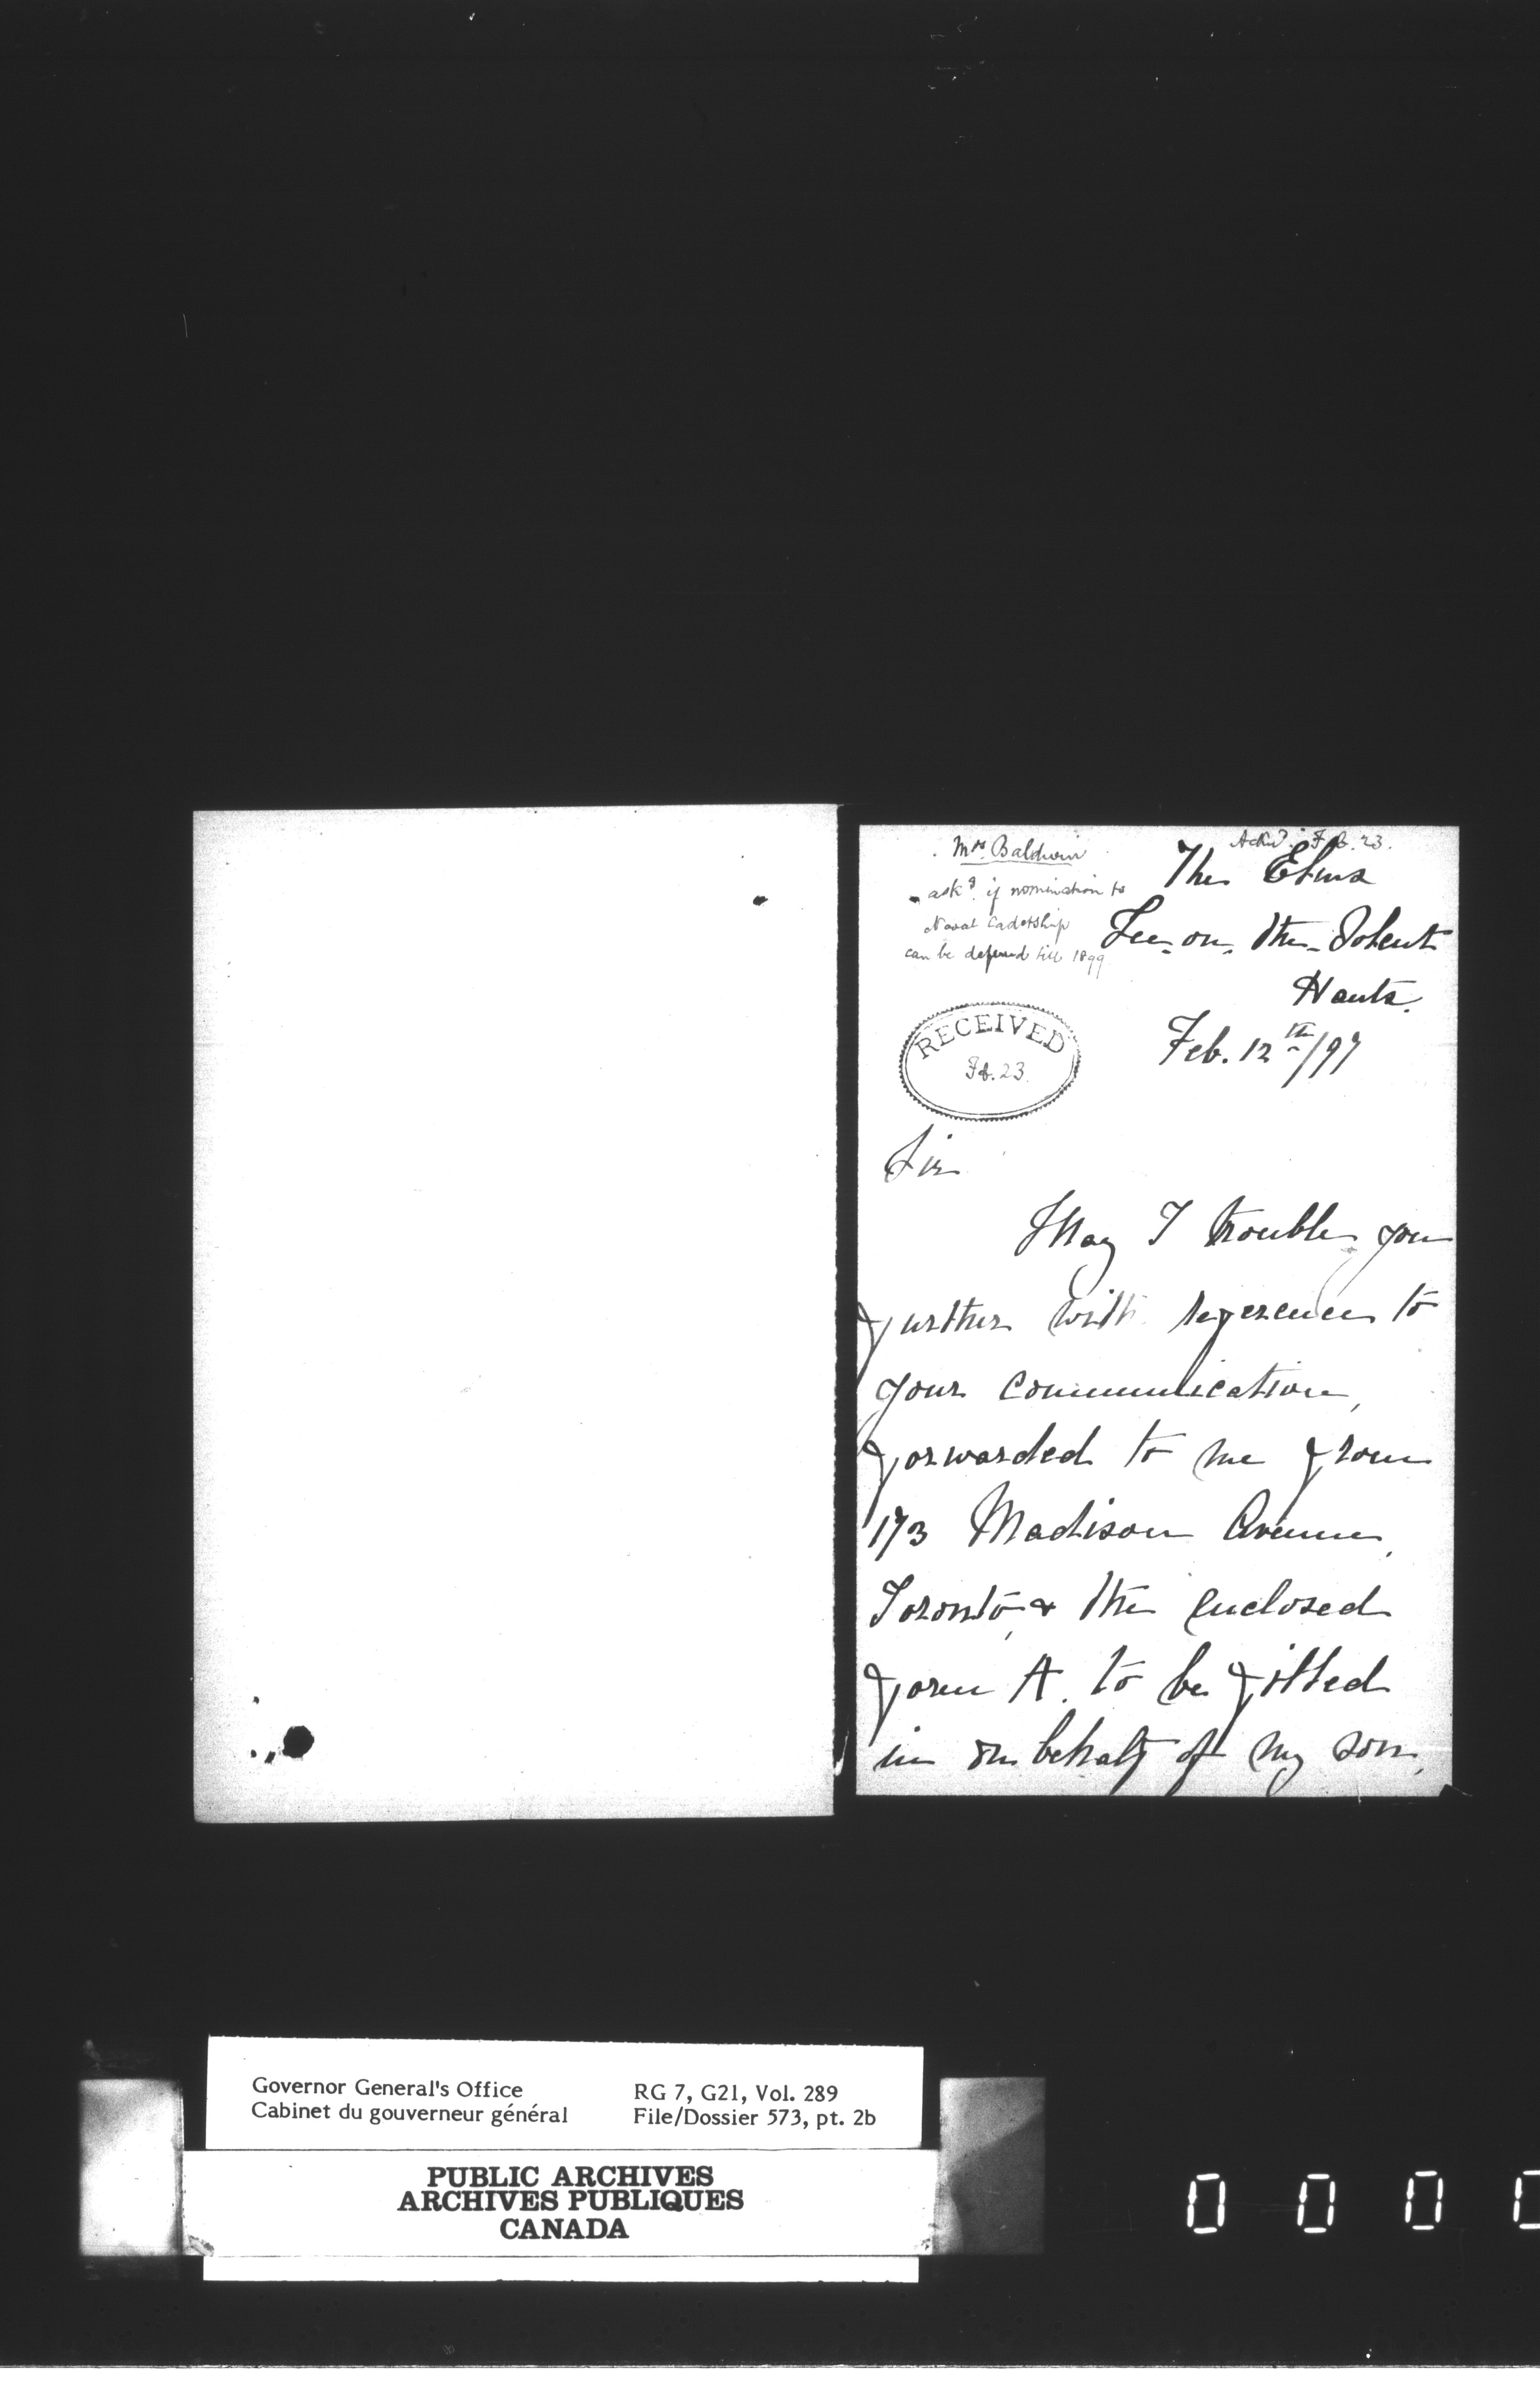 Ackd. Feb. 23.
Mrs. Baldwin
askg. if nomination to
Naval Cadetship
can be deferred till 1899
The Elms
Lee-on-the-Solent
Hants.
Feb. 12th/97
RECEIVED
Feb. 23.
Sir
May I trouble you
further with reference to
your communication,
forwarded to me from
173 Madison Avenue,
Toronto, & the enclosed
form A. to be filled
in on behalf of my son,
Governor General's Office
Cabinet du gouverneur général
RG 7, G21, Vol. 289
File/Dossier 573, pt. 2b
PUBLIC ARCHIVES
ARCHIVES PUBLIQUES
CANADA
0 0 0